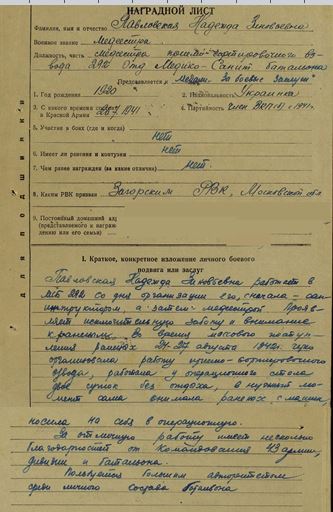 НАГРАДНОЙ ЛИСТ
Фамилия, имя и отчество Павловская Надежда Зиновьевна
Военное звание медсестра
Должность, часть медсестра взвода 292 Отд Медико-Санит батальона
Представляется к медали "За боевые заслуги"
1. Год рождения 1920 2. Национальность Украинка
3. С какого времени в Красной Армии 1941 4. Партийность член ВКП(б) с 1941 г.
5. Участие в боях (где и когда) нет
6. Имеет ли ранения и контузии нет
7. Чем ранее награжден (за какие отличия) нет.
8. Каким РВК призван Загорским РВК, Московской обл
9. Постоянный домашний адрес
(представляемого к награждению или его семьи)
для подшивки
I. Краткое, конкретное изложение личного боевого
подвига или заслуг
Павловская Надежда Зиновьевна работает в
МСБ 292 со дня организации его, сначала - сан
инструктором, а затем медсестрой. Прояв-
ляет исключительную заботу и внимание
к раненым. Во время массового поступ-
ления раненых 24-27 августа 1942г. четко
организовала работу приемо-сортировочного
взвода, работала у операционного стола
двое суток без отдыха, в нужный мо-
мент сама снимала раненых с машин,
носила на себя в операционную.
За отличную работу имеет несколько
благодарностей от командования 43 армии,
дивизии и батальона.
Пользуется большим авторитетом
среди личного состава батальона